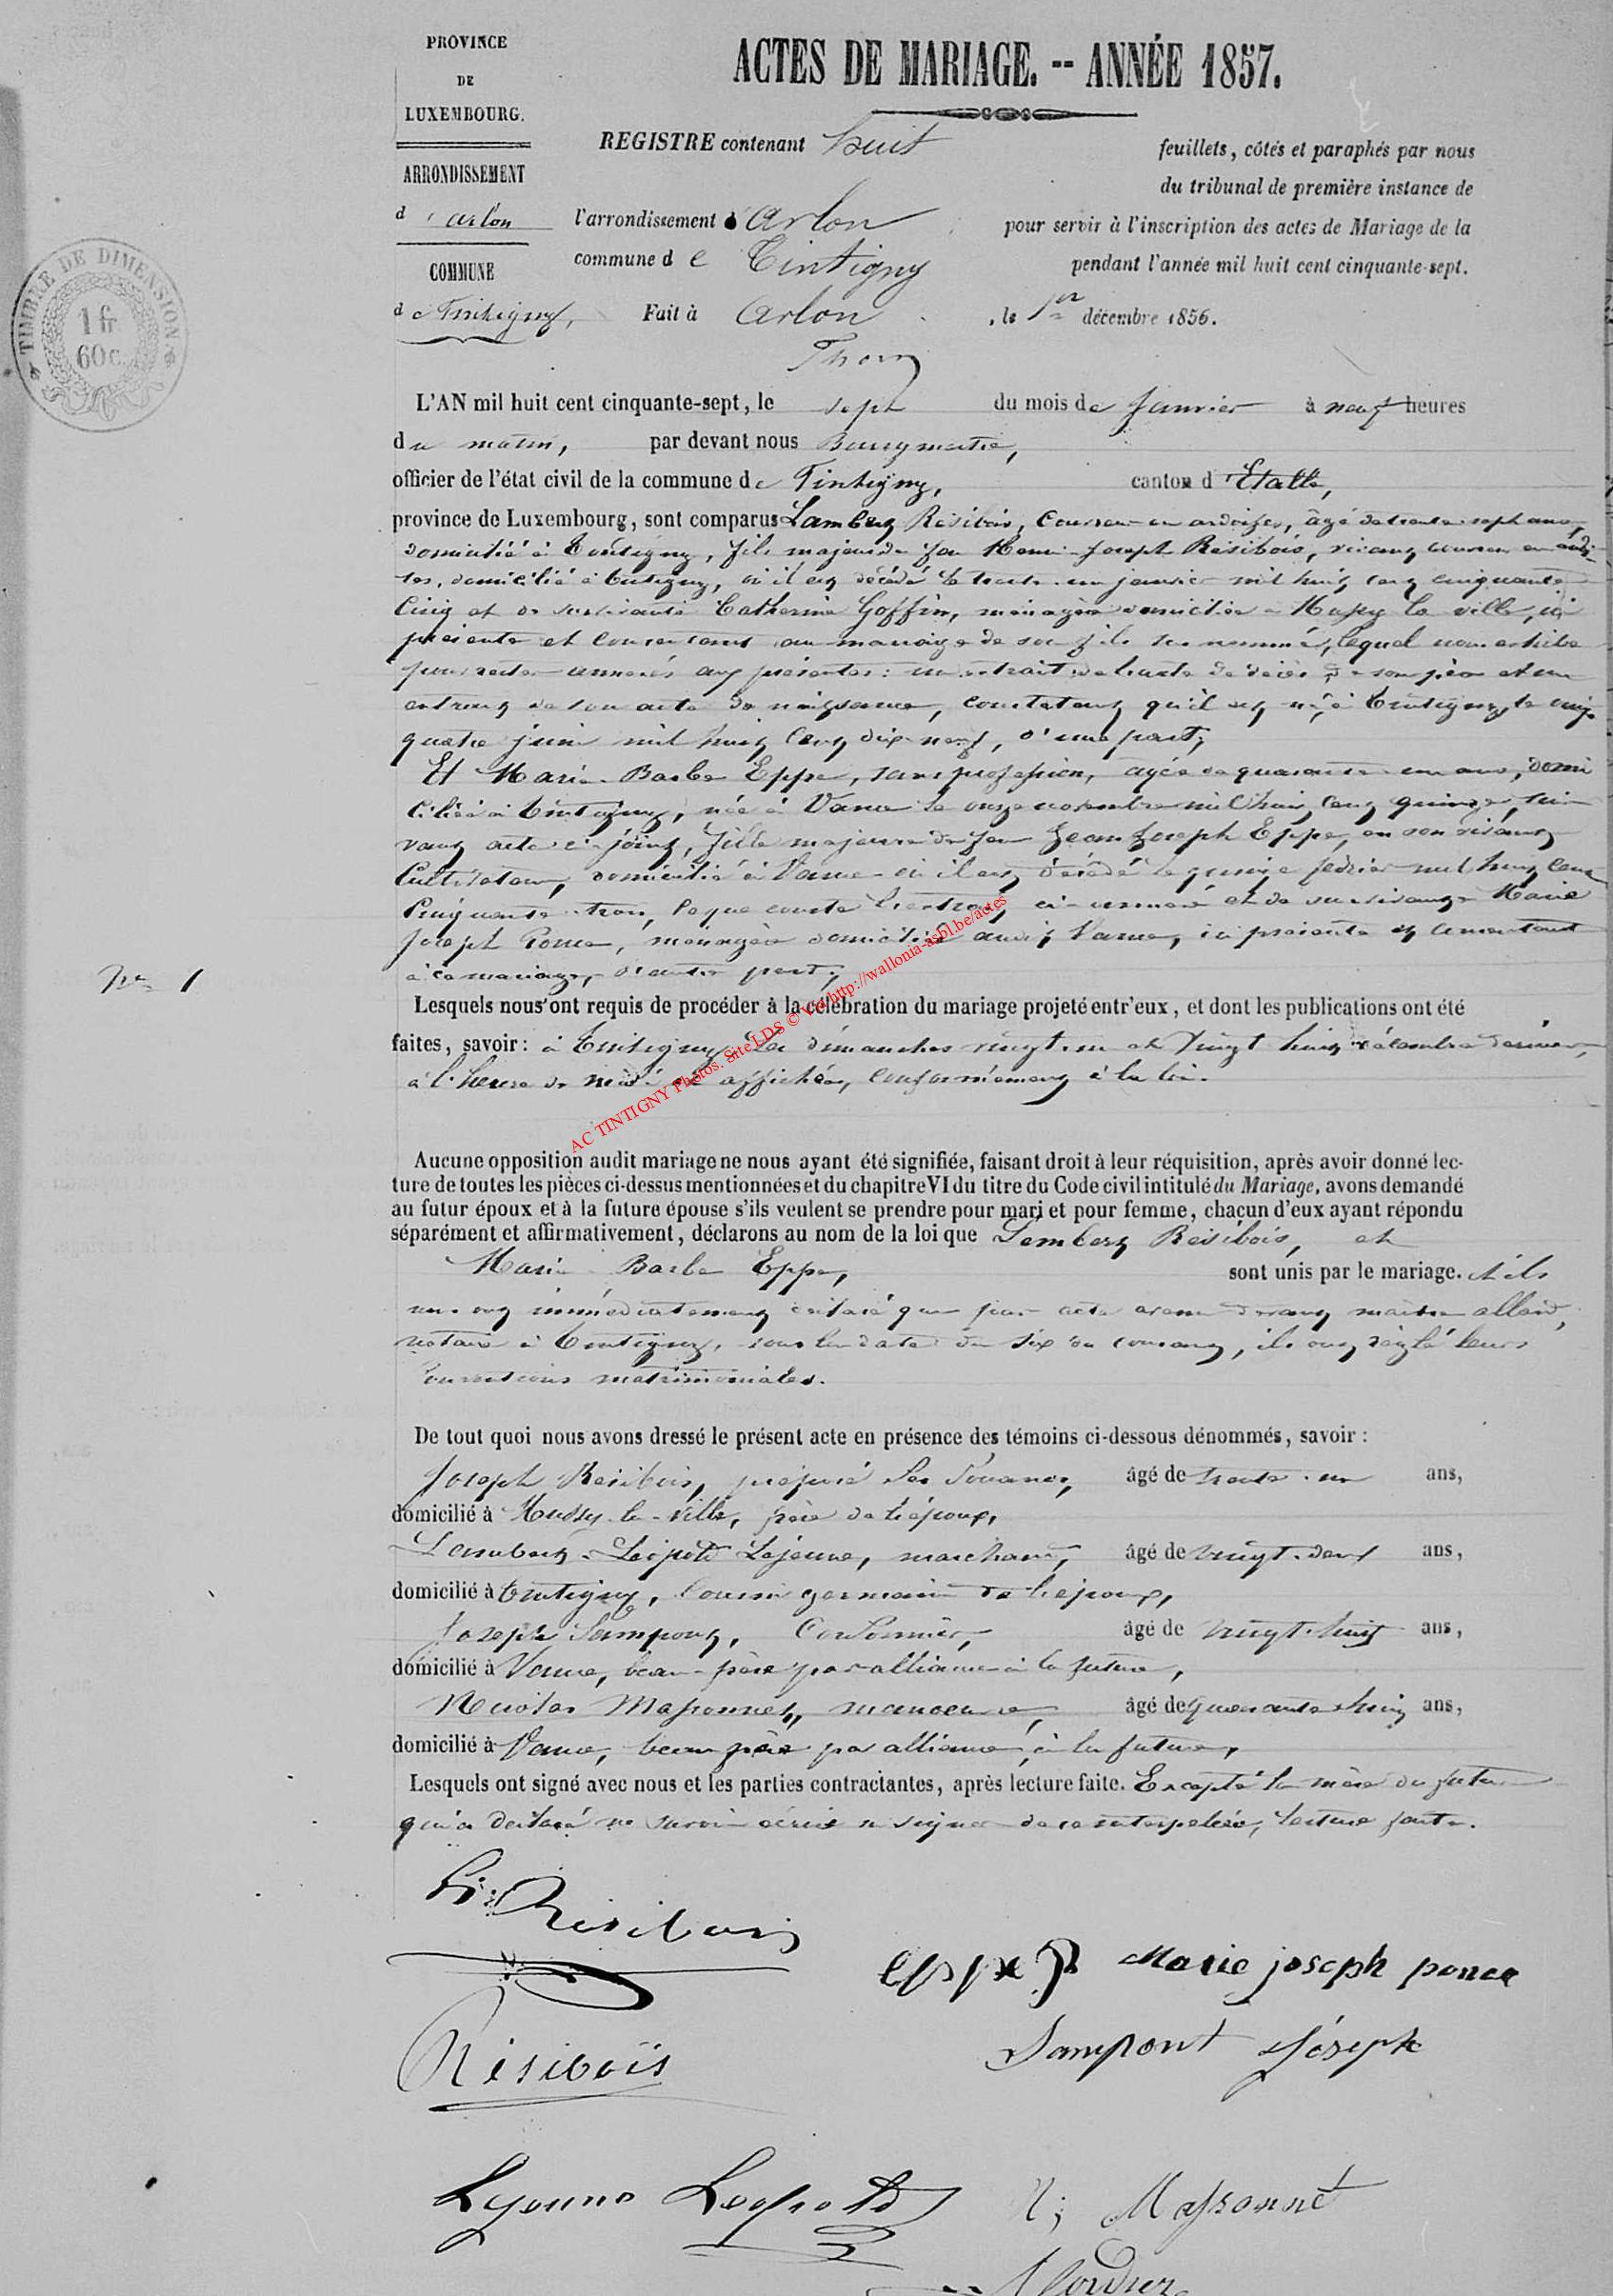 PROVINCE
DE
LUXEMBOURG.
ARRONDISSEMENT
d'arlon
COMMUNE
de Tintigny,
TIMBRE DE DIMENSION
1 fr
60 c.
ACTES DE MARIAGE. -- ANNÉE 1857.
REGISTRE contenant huit feuillets, côtés et paraphés par nous
du tribunal de première instance de
l'arrondissement d'Arlon pour servir à l'inscription des actes de Mariage de la
commune de Tintigny pendant l'année mil huit cent cinquante-sept.
Fait à Arlon, le 1er décembre 1856.
L'AN mil huit cent cinquante-sept, le sept du mois de Janvier à neuf heures
du matin, par devant nous Bourgmestre,
officier de l'état civil de la commune de Tintigny, canton d'Etalle,
province de Luxembourg, sont comparus Lambert Résibois, Couvreur en ardoises, âgé de trente sept ans,
domicilié à Tintigny, fils majeur de feu Henri-Joseph Résibois, vivant couvreur en ardoi-
ses, domicilié à Tintigny, où il est décédé le trente-un janvier mil huit cent cinquante-
cinq et de survivante Catherine Goffin, ménagère domiciliée à Mussy la ville, ici
présente et consentant au mariage de son fils susnommé, lequel nous exhibe
pour rester annexés aux présentes: un extrait de l'acte de décès de son père et un
extrait de son acte de naissance, constatant qu'il est né à Tintigny le vingt-
quatre juin mil huit cent dix-neuf, d'une part;
Et Marie-Barbe Eppe, sans profession, agée de quarante-un ans, domi
ciliée à Tintigny, née à Vance le onze novembre mil huit cent quinze, sui-
vant acte ci-joint, fille majeure de feu Jean Joseph Eppe, en son vivant
Cultivateur, domicilié à Vance où il est décédé le quinze février mil huit cent
Cinquante-trois, ce que conste l'extrait ci-annexé et de survivante Marie
Joseph Ponce, ménagère domiciliée audit Vance, ici présente et consentant
à ce mariage, d'autre part;
No 1
Lesquels nous ont requis de procéder à la célébration du mariage projeté entr'eux, et dont les publications ont été
faites, savoir: à Tintigny les dimanches vingt-un et vingt huit décembre dernier,
à l'heure de midi et affichées, conformément à la loi.
AC TINTIGNY Photos. Site LDS © Via http://wallonia-asbl.be/actes
Aucune opposition audit mariage ne nous ayant été signifiée, faisant droit à leur réquisition, après avoir donné lec-
ture de toutes les pièces ci-dessus mentionnées et du chapitre VI du titre du Code civil intitulé du Mariage, avons demandé
au futur époux et à la future épouse s'ils veulent se prendre pour mari et pour femme, chacun d'eux ayant répondu
séparément et affirmativement, déclarons au nom de la loi que Lambert Résibois, et
Marie Barbe Eppe, sont unis par le mariage. Et ils
nous ont immédiatement déclaré que par acte avenu devant maître
notaire à Tintigny, sous la date du six du courant, ils ont réglé leurs
conventions matrimoniales.
De tout quoi nous avons dressé le présent acte en présence des témoins ci-dessous dénommés, savoir :
Joseph Résibois, préposé des Douanes, âgé de trente-un ans,
domicilié à Mussy-la-ville, frère de l'époux,
Lambert-Léopold Lejeune, marchand, âgé de vingt-deux ans,
domicilié à Tintigny, Cousin germain de l'époux,
Joseph Sampont, Cordonnier, âgé de vingt-huit ans,
domicilié à Vance, beau-frère par alliance à la future,
Nicolas Massonnet, manoeuvre, âgé de quarante-huit ans,
domicilié à Vance, beau frère par alliance à la future,
Lesquels ont signé avec nous et les parties contractantes, après lecture faite. Excepté la mère du futur
qui a déclaré ne savoir écrire ni signer de ce interpelée, lecture faite.
Résibois
Marie joseph ponce
Résibois
Sampont Joseph
Lejeune Leopold
N; Massonnet